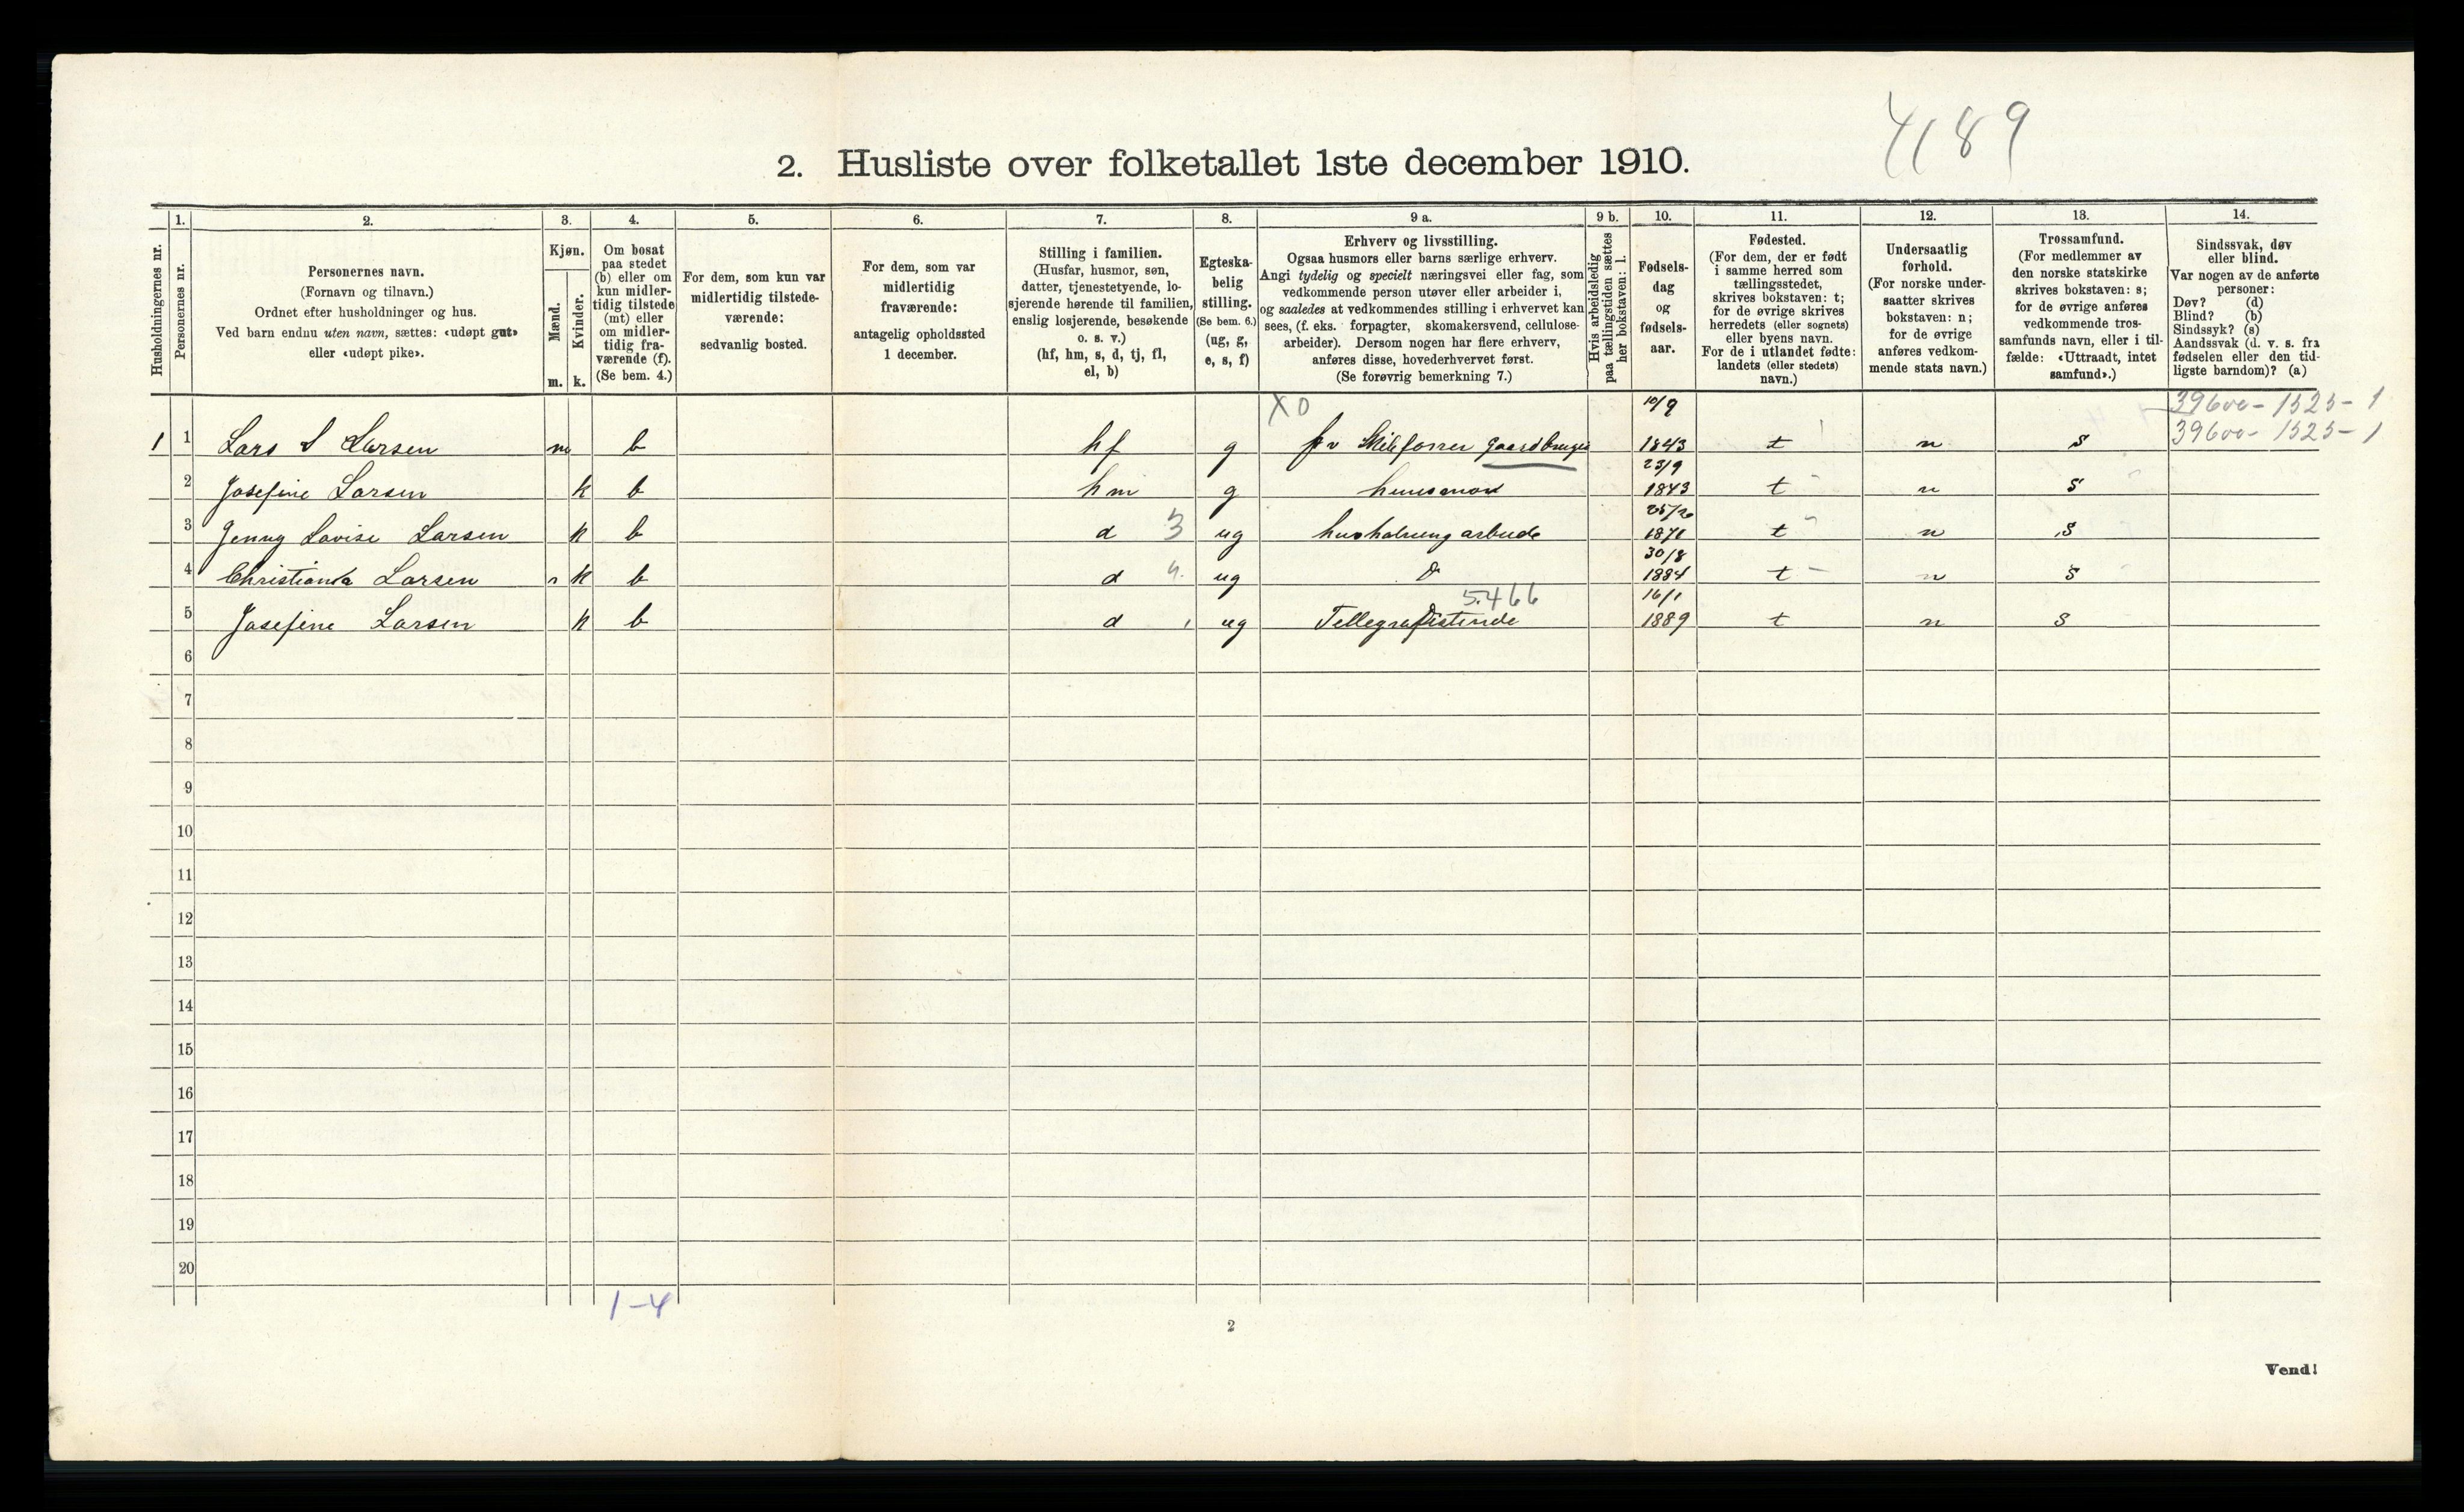 4189
2. Husliste over folketallet 1ste december 1910.
Husholdningernes nr.
1.
Personernes nr.
2.
Personernes navn.
(Fornavn og tilnavn.)
Ordnet efter husholdninger og hus.
Ved barn endnu uten navn, sættes: «udøpt gut»
eller «udøpt pike».
3.
Kjøn.
Mænd.
Kvinder.
m. k.
4.
Om bosat
paa stedet
(b) eller om
kun midler-
tidig tilstede
(mt) eller
om midler-
tidig fra-
værende (f).
(Se bem. 4.)
5.
For dem, som kun var
midlertidig tilstede-
værende:
sedvanlig bosted.
6.
For dem, som var
midlertidig
fraværende:
antagelig opholdssted
1 december.
7.
Stilling i familien.
(Husfar, husmor, søn,
datter, tjenestetyende, lo-
sjerende hørende til familien,
enslig losjerende, besøkende
o. s. v.)
(hf, hm, s, d, tj, fl,
el, b)
8.
Egteska-
belig
stilling.
(Se bem. 6.)
(ug, g,
e, s, f)
9 a.
Erhverv og livsstilling.
Ogsaa husmors eller barns særlige erhverv.
Angi tydelig og specielt næringsvei eller fag, som
vedkommende person utøver eller arbeider i,
og saaledes at vedkommendes stilling i erhvervet kan
sees, (f. eks. forpagter, skomakersvend, cellulose-
arbeider). Dersom nogen har flere erhverv,
anføres disse, hovederhvervet først.
(Se forøvrig bemerkning 7.)
9 b.
Hvis arbeidsledig
paa tællingstiden sættes
her bokstaven: l.
10.
Fødsels-
dag
og
fødsels-
aar.
11.
Fødested.
(For dem, der er født
i samme herred som
tællingsstedet,
skrives bokstaven: t;
for de øvrige skrives
herredets (eller sognets)
eller byens navn.
For de i utlandet fødte:
landets (eller stedets)
navn.)
12.
Undersaatlig
forhold.
(For norske under-
saatter skrives
bokstaven: n;
for de øvrige
anføres vedkom-
mende stats navn.)
13.
Trossamfund.
(For medlemmer av
den norske statskirke
skrives bokstaven: s;
for de øvrige anføres
vedkommende tros-
samfunds navn, eller i til-
fælde: «Uttraadt, intet
samfund».)
14.
Sindssvak, døv
eller blind.
Var nogen av de anførte
personer:
Døv? (d)
Blind? (b)
Sindssyk? (s)
Aandssvak (d. v. s. fra
fødselen eller den tid-
ligste barndom)? (a)
X0 10/9 39600 - 1525 - 1
1 1 Lars L Larsen m b hf g fv Skibsfører gaardbruger 1843 t n s 39600 - 1525 - 1
23/9
2 Josefine Larsen k b hm g huusmor 1843 t n s
3 Jenny Lovise Larsen k b d 3 ug husholdning arbeide 1871 t n s
30/8
4 Christianka Larsen k b d 4. ug D 1884 t n s
5466 16/1
5 Josefine Larsen k b d ug Tellegrafistinde 1889 t n s
6
7
8
9
10
11
12
13
14
15
16
17
18
19
20
1-4
2
Vend!